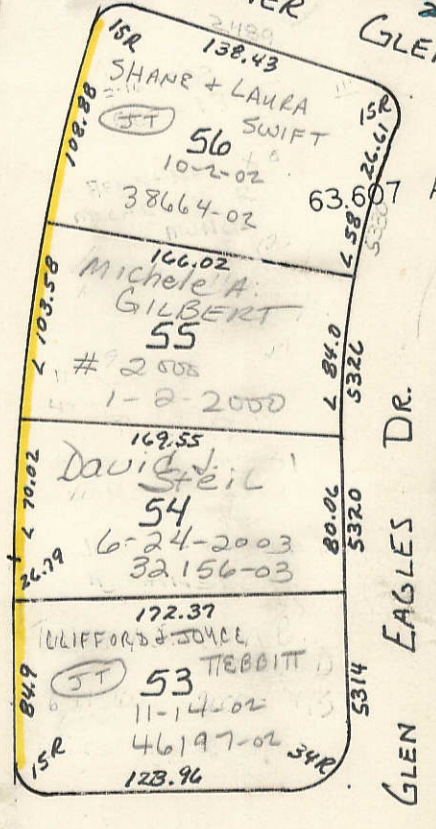 GLEN
15R
138.43
15R
SHANE & LAURA
SWIFT
JT
56
10-2-02
38664-02
108.88
26.61
63.607
L 58
166.02
Michele A.
GILBERT
55
# 2000
1-2-2000
L 103.58
L 84.0
5326
169.55
David J.
Steil
54
6-24-2003
32156-03
L 70.02
26.79
80.06
5320
172.37
CLIFFORD & JOYCE
TEBBITT
JT
53
11-14-02
46197-02
84.9
5314
15R
34R
123.96
GLEN EAGLES DR.